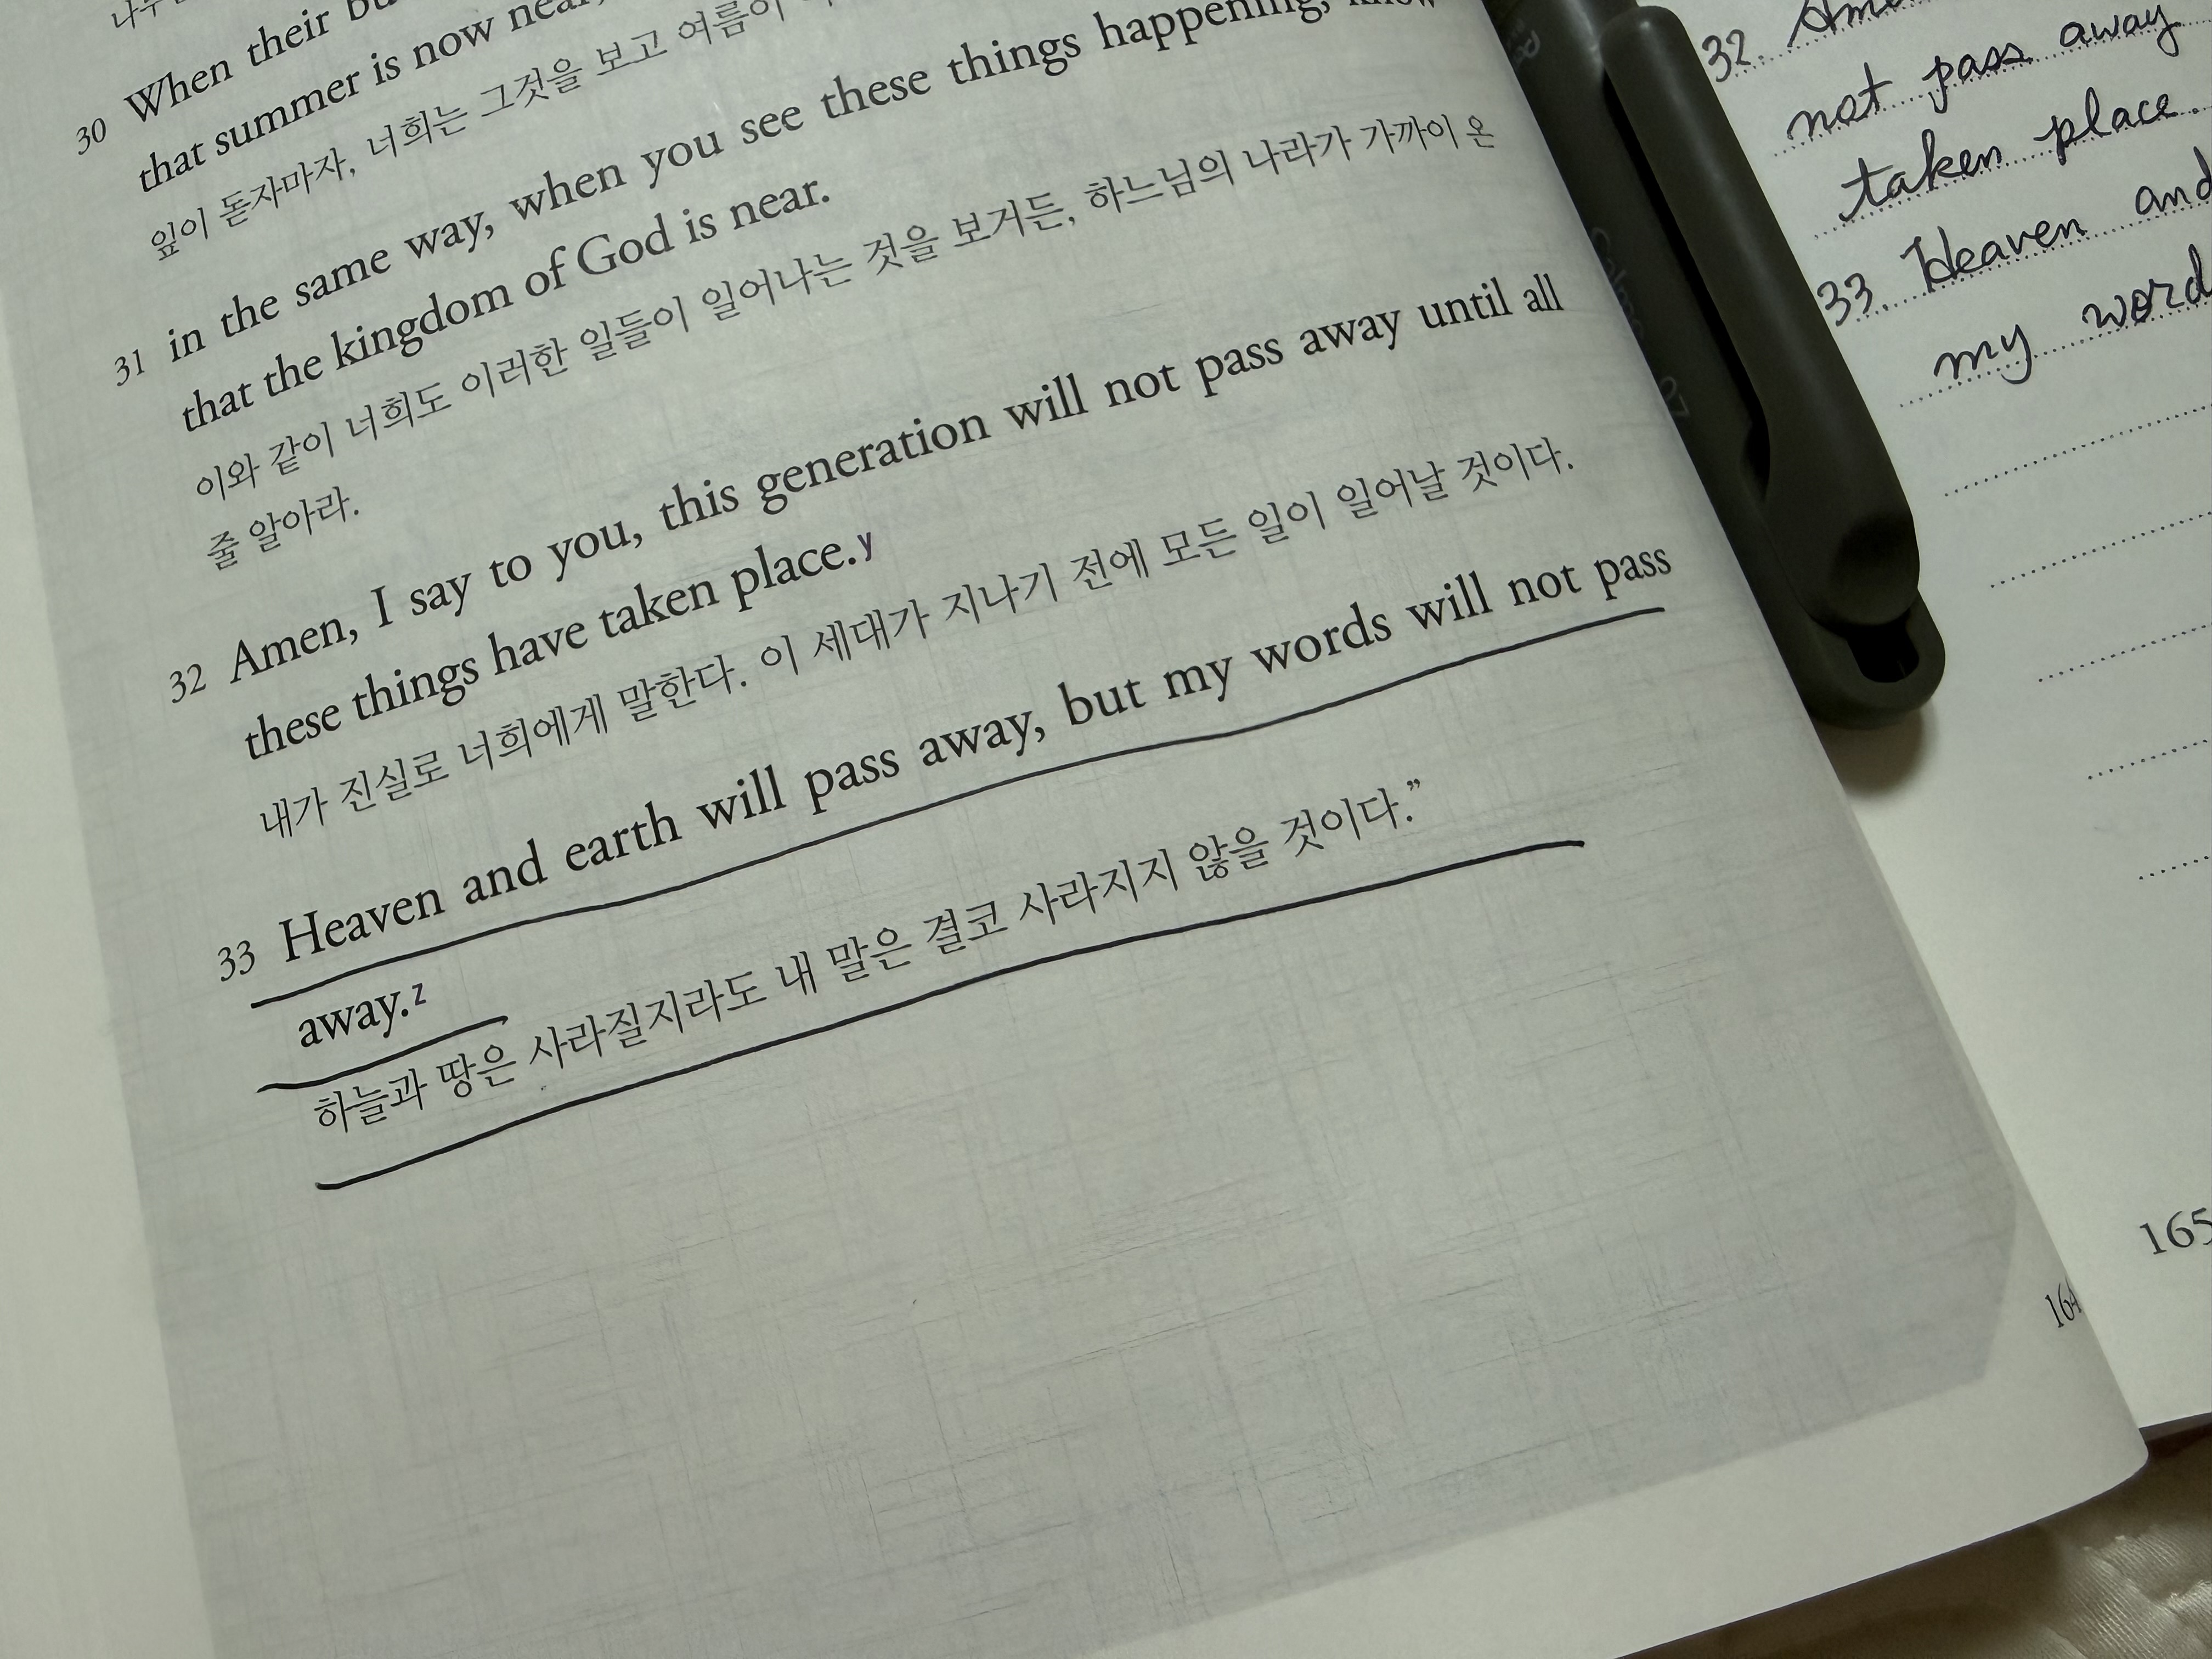 30 When their
that summer is now near,
잎이 돋자마자, 너희는 그것을 보고 여름이
31 in the same way, when you see these things happening, know
that the kingdom of God is near.
이와 같이 너희도 이러한 일들이 일어나는 것을 보거든, 하느님의 나라가 가까이 온
줄 알아라.
32 Amen, I say to you, this generation will not pass away until all
these things have taken place.y
내가 진실로 너희에게 말한다. 이 세대가 지나기 전에 모든 일이 일어날 것이다.
33 Heaven and earth will pass away, but my words will not pass
away.z
하늘과 땅은 사라질지라도 내 말은 결코 사라지지 않을 것이다.”
32.
not pass away
taken place.
33. Heaven and
my word
165